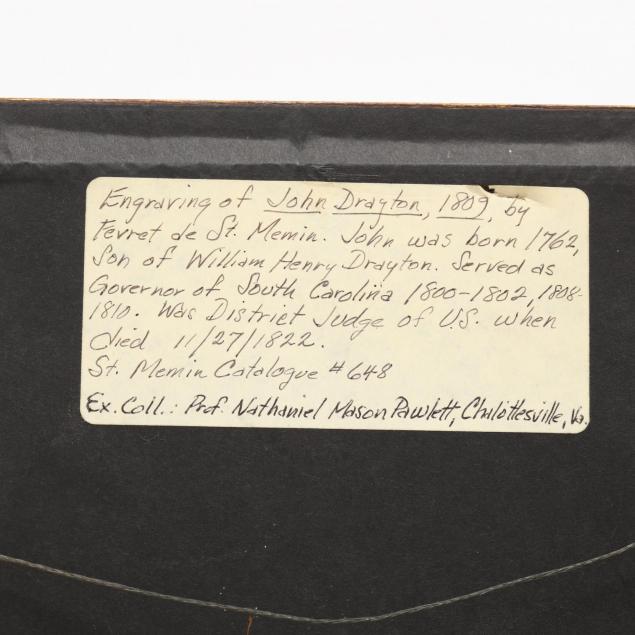 Engraving of John Drayton, 1809, by
Fevret de St. Memin. John was born 1762,
Son of William Henry Drayton. Served as
Governor of South Carolina 1800-1802, 1808-
1810. Was District Judge of U.S. when
died 11/27/1822.
St. Memin Catalogue #648
Ex. Coll.: Prof. Nathaniel Mason Pawlett, Chalottesville, Va.